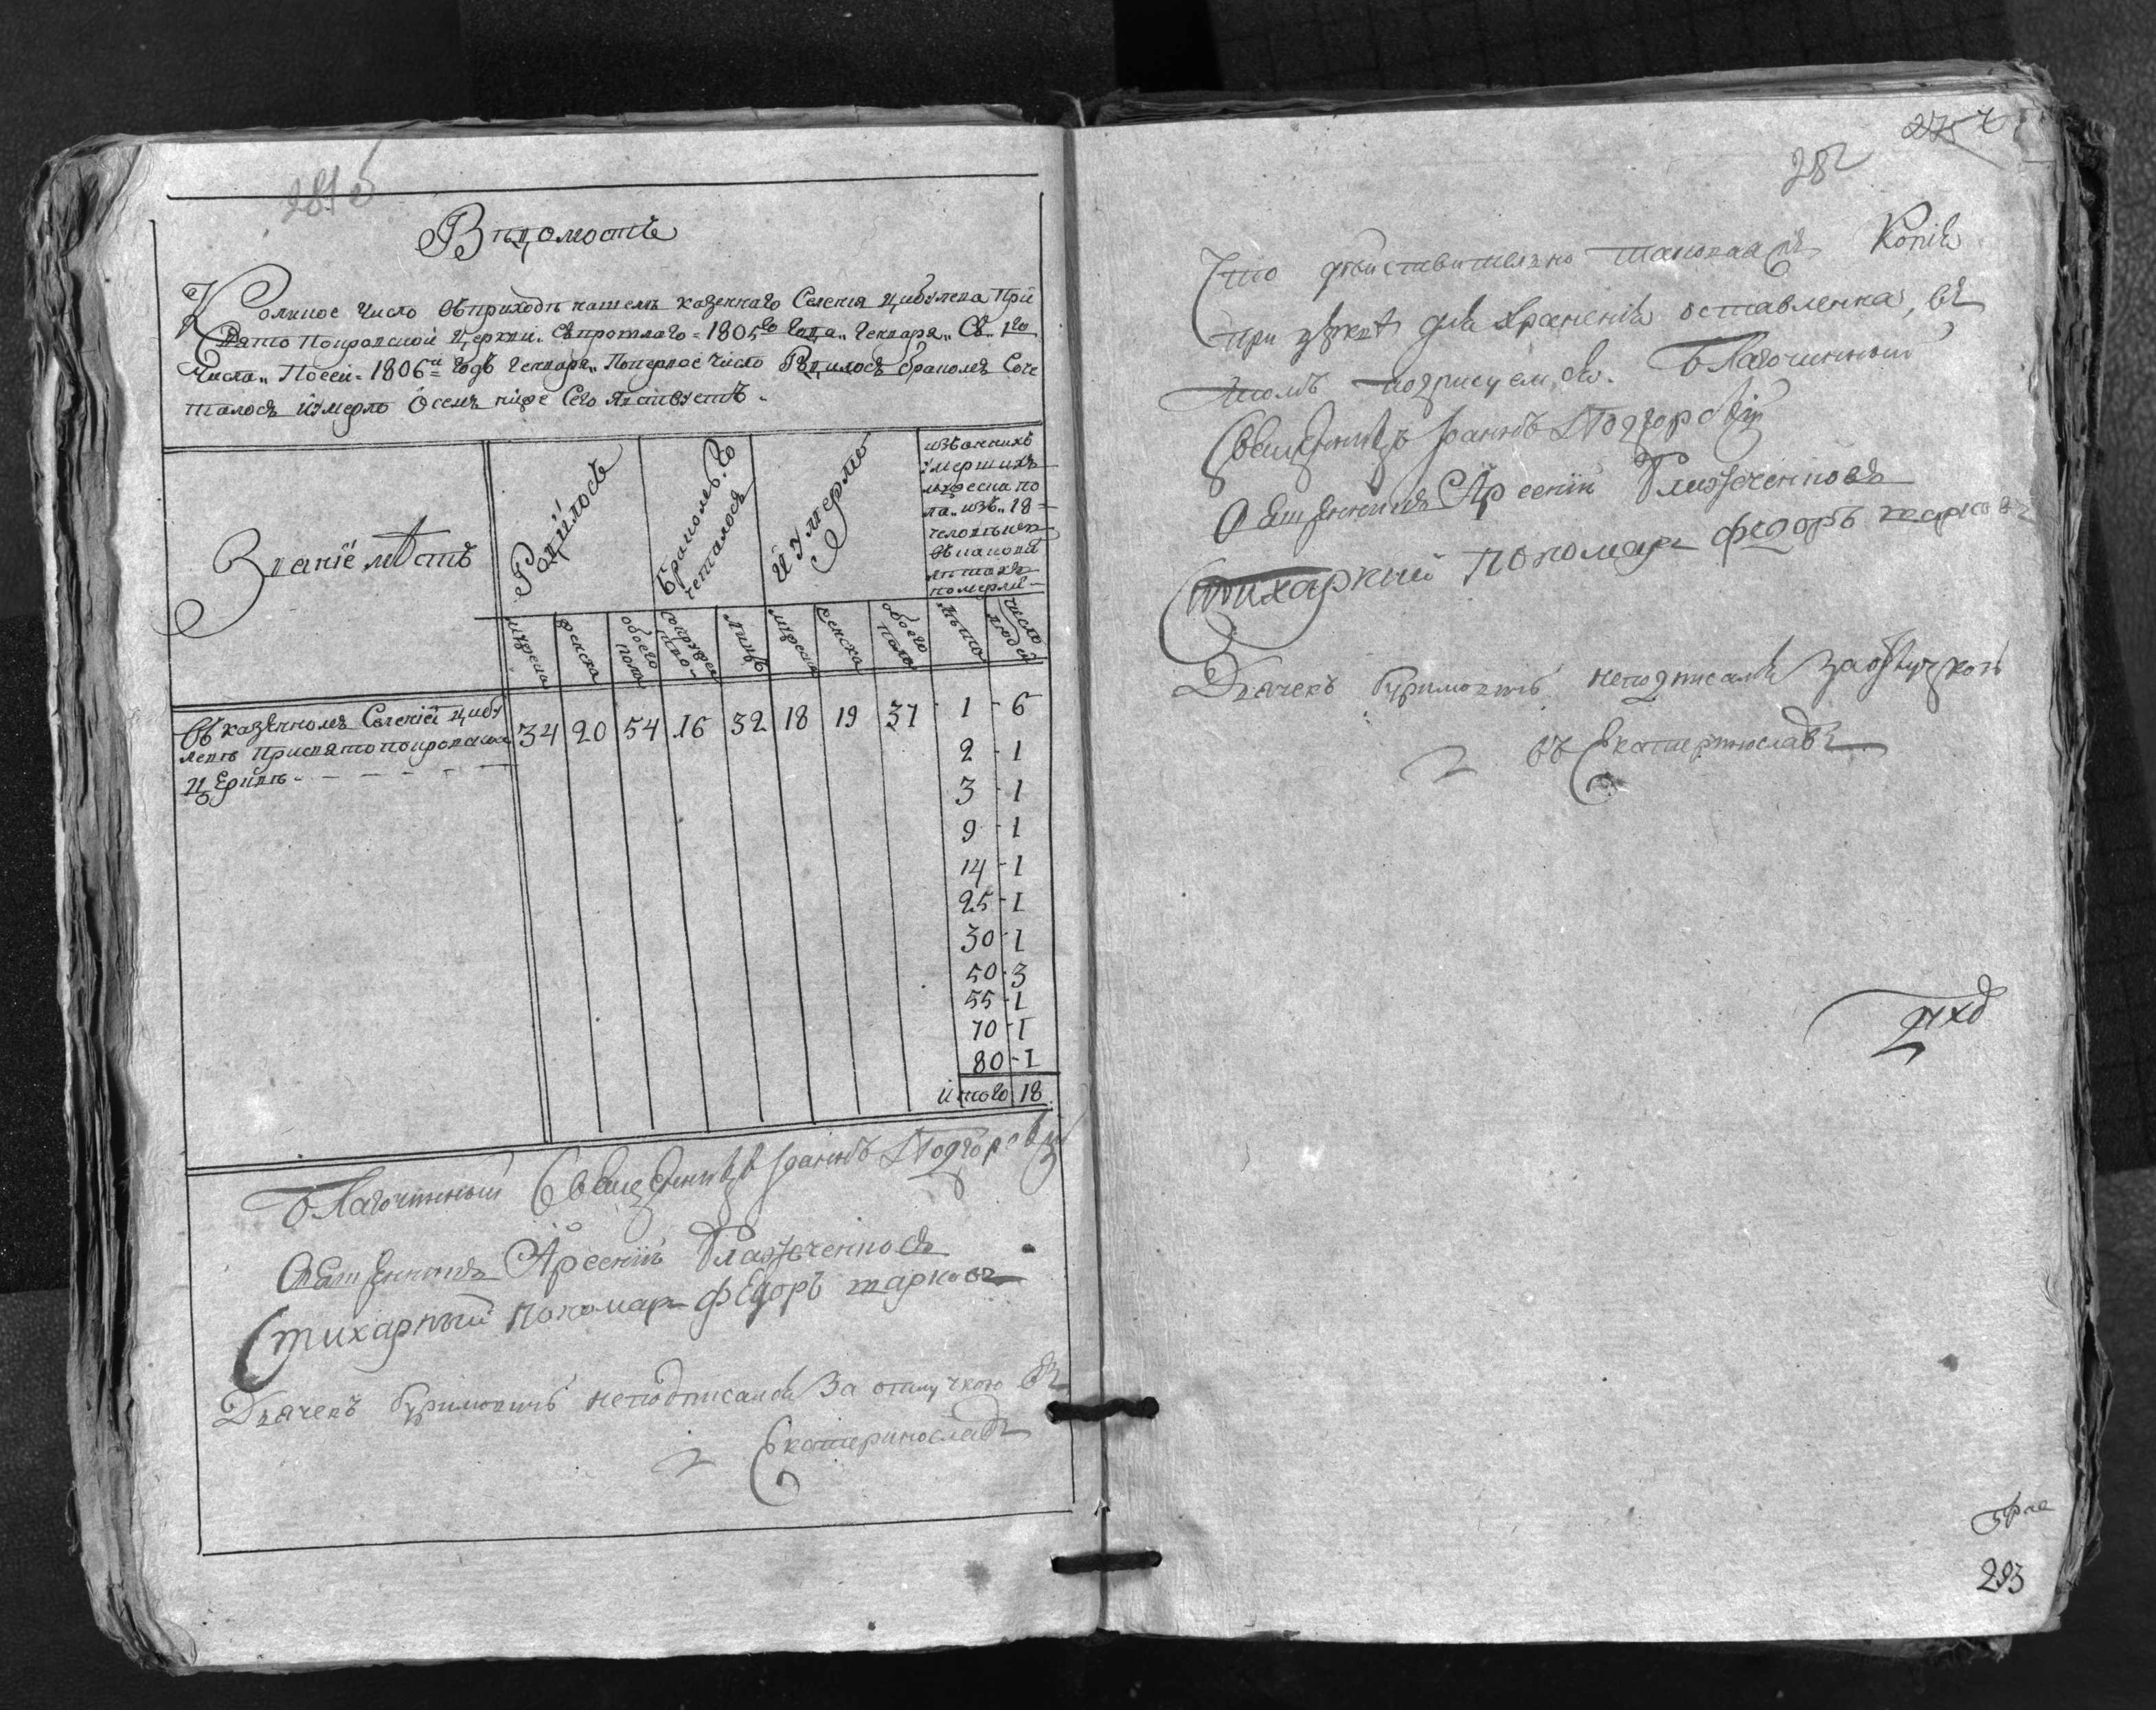 281 б
Вѣдомость
Коликое число въ приходѣ нашемъ казеннаго Селенія Цибулева При
Свято Покровской Церкви. Съ прошлаго = 1805го Года „ Генваря „ Съ „ 1го
Числа „ По сей = 1806й Годъ Генваря „ Поперьвое Число Родилось бракомъ Соче
талось и умерло О семъ ниже Сего Явствуетъ.
Званіе мѣстъ
Родилось
Бракомъ со
четалось
И Умерло
изъ оныхъ
умершихъ
мужеска по
ла „ изъ „ 18
человѣкъ
въ какова
лѣтахъ
померли
мужеска
женска
обоего
пола
супруже
ство
Лицъ
мужеска
женска
обоего
пола
лѣта
число
людей
Въ казенномъ Селеніи Цибу
левѣ При свято покровской
Церквѣ
34 20 54 16 32 18 19 37 1 - 6
2 - 1
3 - 1
9 - 1
14 - 1
25 - 1
30 - 1
50 - 3
55 - 1
70 - 1
80 - 1
Итого 18
Благочинный Священникъ Іоаннъ Подгорскій
Священникъ Арсеній
Стихарный Пономарь Федоръ марковъ
Дьячекъ неподписался За отлучкою въ
Екатеринославъ
282
Что действительно таковая жъ Копія
при церкве для храненія оставленна, въ
томъ подписуемся. Благочинный
Священникъ Іоаннъ Подгорскій
Священникъ Арсеній
Стихарный Пономарь Федоръ марковъ
Дьячекъ неподписался за отлучкою
въ Екатеринославъ
293